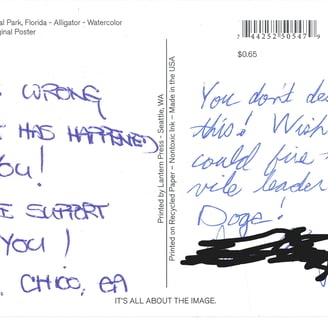 al Park, Florida - Alligator - Watercolor
ginal Poster
7 44252 50547 9
$0.65
WRONG
HAS HAPPENED
YOU!
E SUPPORT
YOU!
, CHICO, CA
Printed by Lantern Press - Seattle, WA
Printed on Recycled Paper - Nontoxic Ink - Made in the USA
You don't de
this! Wish
could fire
vile leader
Doge!
IT'S ALL ABOUT THE IMAGE.